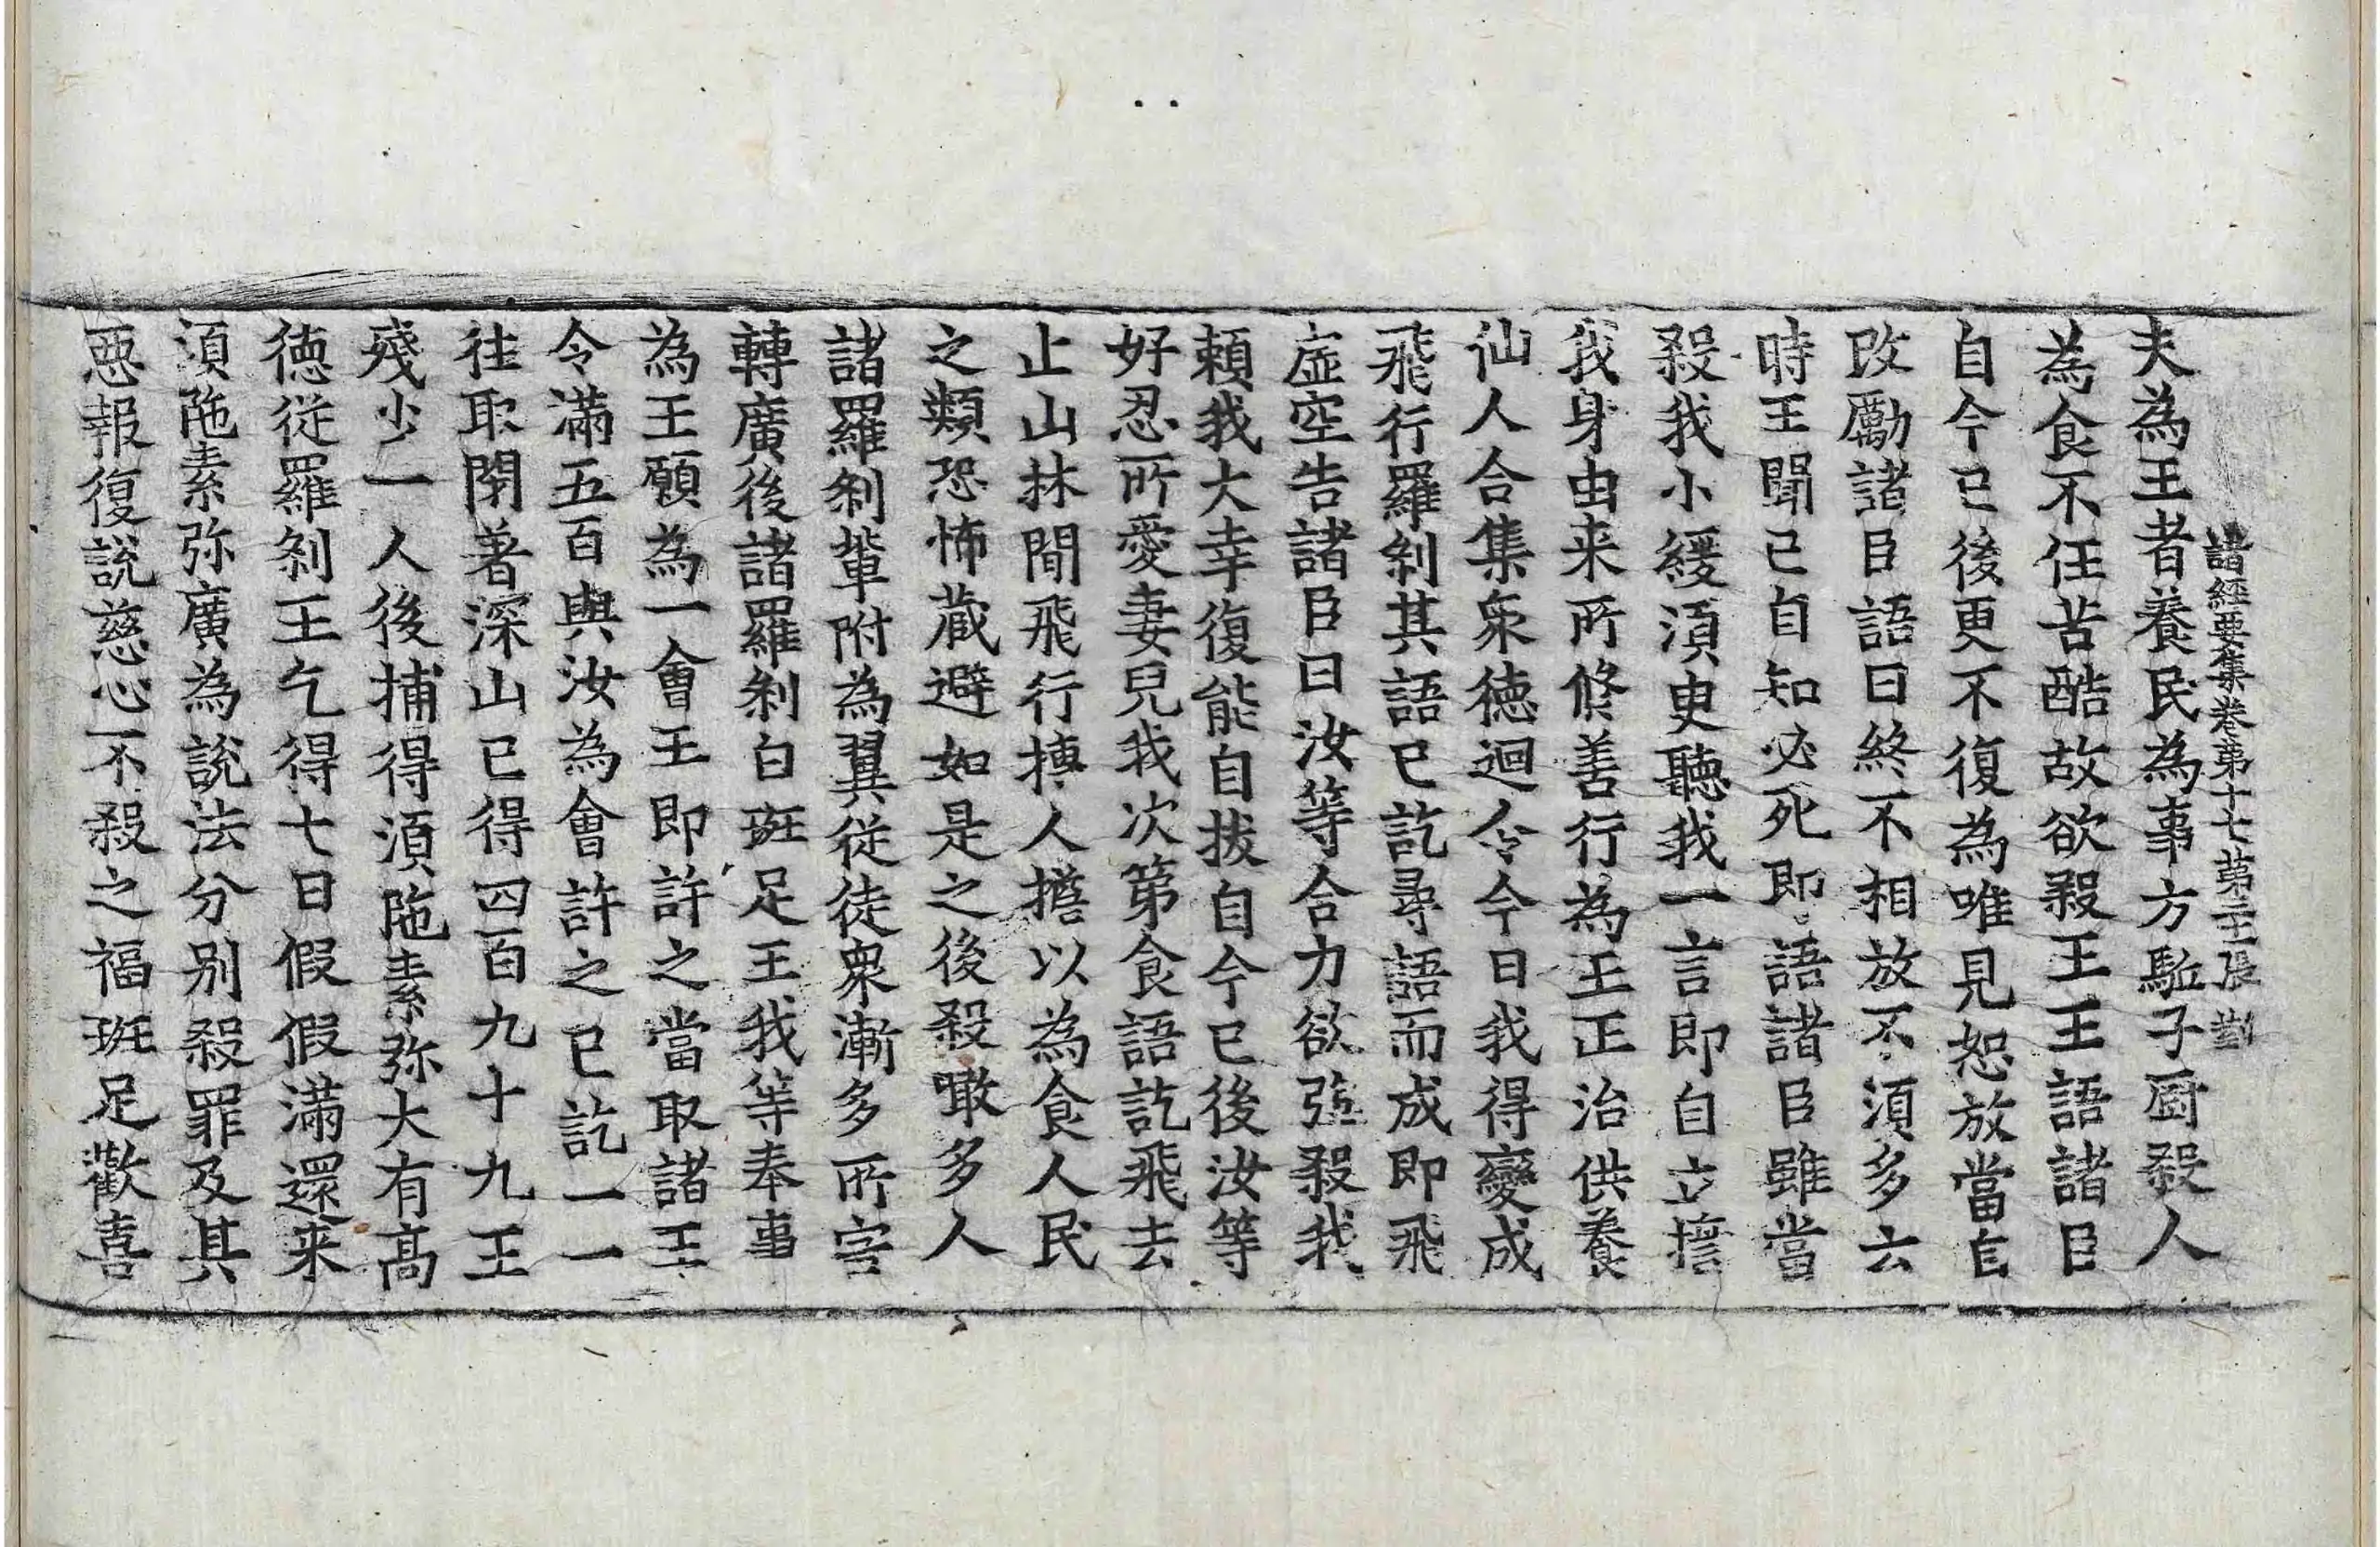 諸經要集卷第十七第三張 對
夫為王者養民為事方駈子厨殺人
為食不任苦酷故欲殺王王語諸臣
自今已後更不復為唯見恕放當自
改勵諸臣語曰終不相放不須多云
時王聞已自知必死即語諸臣雖當
殺我小緩須臾聽我一言即自立擔
我身由来所修善行為王正治供養
仙人合集衆德迴令今日我得變成
飛行羅剎其語已訖尋語而成即飛
虛空告諸臣曰汝等合力欲强殺我
賴我大幸復能自拔自今已後汝等
好忍所愛妻兒我次第食語訖飛去
止山林間飛行摶人擔以為食人民
之類恐怖藏避如是之後殺噉多人
諸羅剎輩附為翼從徒衆漸多所害
轉廣後諸羅剎白斑足王我等奉事
為王願為一會王即許之當取諸王
令滿五百與汝為會許之已訖一一
往取閉著深山已得四百九十九王
殘少一人後捕得須陁素弥大有高
德從羅剎王乞得七日假假滿還来
須陁素弥廣為說法分别殺罪及其
惡報復說慈心不殺之福斑足歡喜